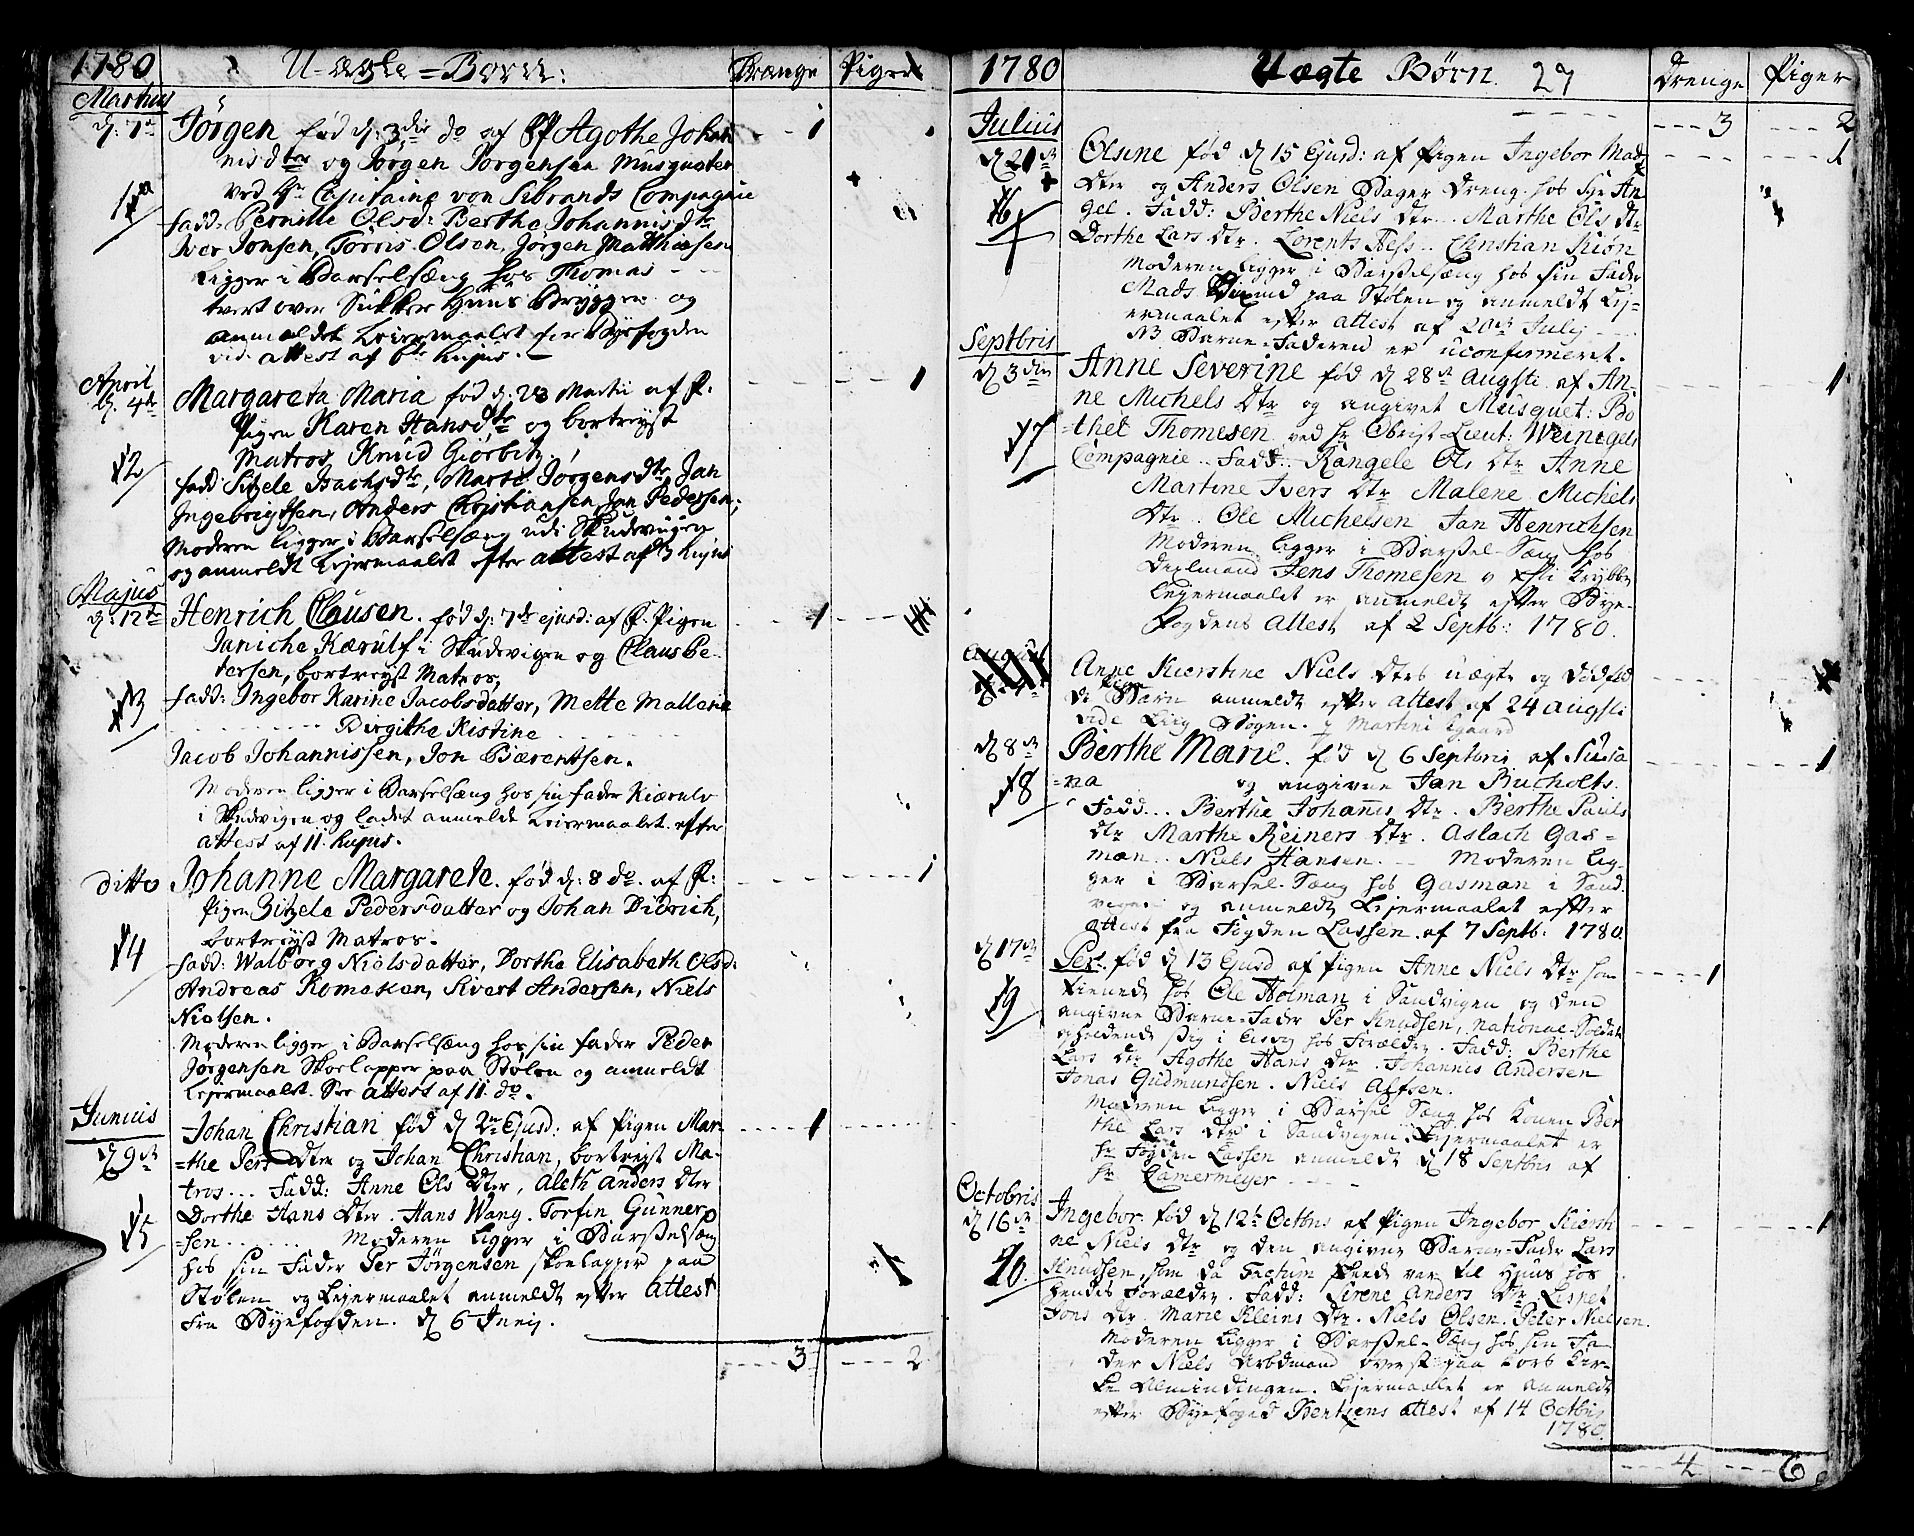 1780 U-ægte=Børn: Drænge Piger
Martius
d: 7de Jörgen fød d: 3die do af P Agothe Johan
nisdtr og Jörgen Jörgensen Musqueter
ved Hr Capitaine von Sibrands Compagnie
11
fadd: Pernille Olsd: Berthe Johannisdtr
Iver Jonsen, Torris Olsen, Jörgen Matthiæsen
ligger i Barselsæng hos Thomas
tvert over Sukker Huus Bryggen og
anmeldet Leiermaalet for Byefogden
vid: attest af 6te hujus.
April
d. 4de Margareta Maria fød d: 28 Martii af P:
Pigen Karen Hansdtr og bortreyst
Matros Knud Giörbitz
12
fadd: Sitzele Isachsdtr, Marte Jörgensdtr Jan
Ingebrigtsen, Anders Christiansen, Jan Pedersen;
Moderen ligger i Barselsæng udi Skudevigen
og anmeldt Leiermaalet efter attest af 3 hujus
Majus
d: 12te Henrich Clausen. fød d: 7de ejusd: af P. Pigen
Janiche Kærulf i Skudevigen og Claus Pe-
tersen, bortreyst Matros,
13
fadd: Ingebor Karine Jacobsdatter, Mette Mallene
Birgithe Kistine
Jacob Johannissen, Jon Biærentsen.
Moderen ligger i Barselsæng hos sin fader Kiærulv
i Skudevigen og ladet anmelde Leiermaalet efter
attest af 11. hujus.
ditto Johanne Margarete. fød d: 8 do. af P:
Pigen Zitzele Pedersdatter og Johan Didrich,
bortreyst Matros.
14
fadd: Walborg Nielsdatter, Dorthe Elisabeth Olsd:
Andreas Romasken, Sivert Andersen, Niels
Nielsen.
Moderen ligger i Barselsæng hos sin fader Peder
Jörgensen Skoelapper paa Stölen og anmeldt
Leyermaalet. See attest af 11. do.
Junius
d 9de Johan Christian fød d 2den Ejusd: af Pigen Mar-
=the Pers dtr og Johan Christian, bortreist Ma-
tros... Fadd: Anne Ols dter, Aleth Anders dter
Dorthe Hans dter. Hans Wang. Torfin Gunner
15
=sen Moderen ligger i Barselsæng
hos sin Fader Per Jørgensen skoelapper paa
Stølen og Leyermaalet anmeldt efter attest
fra Byefogden. d 6 Junij.
3 2
1780 Uægte Børn. 27 Drenge Piger
3 2
Julius
d 21de Olsine fød d 15 Ejusd: af Pigen Ingebor Mads
Dtr og Anders Olsen Bager dreng hos Sr An-
16
gel. Fadd: Berthe Niels Dtr. Marthe Ols dtr
Dorthe Lars Dtr. Lorents Hess.. Christian Kiøn
Moderen ligger i Barselsæng hos sin Fader
Mads paa Stølen og anmeldt Ley-
ermaalet efter attest af 20de Julij
NB Barne-Faderen er uconfirmeret.
Septbris
d 3die Anne Severine fød d 28de Augsti af An-
ne Michels Dtr og angivet Musquet: Bo
17
=thel Thomesen ved Hr Obrist Lieut: Weinegels
Compagnie.. Fadd: Rangele Ols Dtr Anne
Martine Ivers Dtr Malene Michels
Dtr. Ole Michelsen Jan Henrichsen
Moderen ligger i Barsel-Sæng hos
Jens Thomesen Krybbe
Leyermaalet er anmeldt efter Bye-
Fogdens Attest af 2 Septb: 1780.
August
Anne Kierstine Niels Dtrs uægte og dødfød
de Pige Barn anmeldt efter attest af 24 Augsti
vide Liig Bogen.
d 8de Berthe Marie. fød d 6 Septbris af Susa
18
=na og angivne Jan Bucholts.
Fadd... Berthe Johans Dtr. Berthe Pauls
Dtr Marthe Reiners Dtr. Aslach Gas-
man.. Niels Hansen. Moderen lig-
ger i Barsel-Sæng hos Gasman i Sand
vigen og anmeldt Leyermaalet efter
attest fra Fogden Lassen. af 7 Septb: 1780.
d 17de Per. fød d 13 Ejusd af Pigen Anne Niels Dtr som
tienede hos Ole Holman i Sandvigen og den
19
angivne Barne-Fader Per Knudsen, National-Soldat
opholdende sig i hos Forældre. Fadd: Berthe
Lars Dtr Agothe Hans dtr. Johannis Andersen
Jonas Gudmundsen. Niels Alfsen.
Moderen ligger i Barsel Sæng hos Konen Ber
the Lars Dtr i Sandvigen, Leyermaalet er
Hr Fogden Lassen anmeldt d 18 Septbris af
Hr Camermeyer
Octobris
d 16de Ingebor fød d 12te Octbris af Pigen Ingebor Kiersti
ne Niels Dtr og den angivne Barne-Fader Lars
20.
Knudsen, som da Factum skeede var til Huus hos
hendes Forældre. Fadd: Sirene Anders Dtr Lispet
Jons Dtr Marie Kleins Dtr. Niels Olsen. Peter Nielsen.
Moderen ligger i Barsel-Sæng hos sin Fa-
der Niels Arbdmand øverst paa Kors Kir-
ke Almindingen. Leyermaalet er anmeldt
efter Byefoged Bentzens attest af 14 Octbris
1780.
4 6